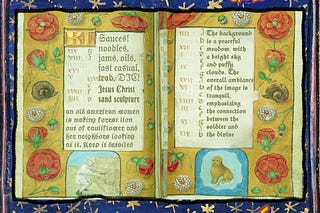 Sauces!
noobles,
jams, oils,
fast casual,
Jesus Christ
sand sculpture
an old american women
is making forest lion
out of cauliflower and
her neighbors looking
at it. Keep it detailed
The background
is a peaceful
meadow, with
a bright sky
and puffy
clouds. The
overall ambiance
of the image is
tranquil,
emphasizing
the connection
between the
soldier and
the divine